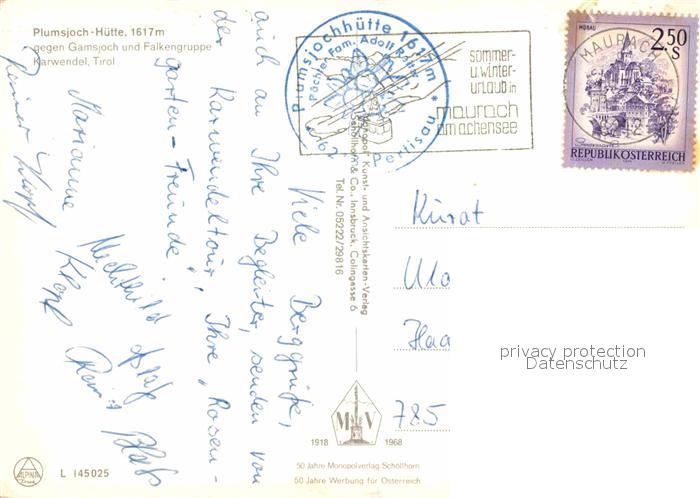 Plumsjoch-Hütte, 1617m
gegen Gamsjoch und Falkengruppe
Karwendel, Tirol
Plumsjochhütte 1617m
Pächter Fam. Adolf
Pertisau
sommer-
u.winter-
urlaub in
maurach
am achensee
MAURACH
MURAU
2.50
S
REPUBLIK ÖSTERREICH
Viele Berggrüße,
auch an Ihre Begleiter, senden von
der Karwendeltour, Ihre "Rosen-
garten-Freunde"
Marianne
Rainer
Mechthild
Monopol Kunst- und Ansichtskarten-Verlag
Schöllhorn & Co., Innsbruck, Colingasse 6
Tel. Nr. 05222/29816
Kurat
Ulo
Haa
785
privacy protection
Datenschutz
M V
1918 1968
50 Jahre Monopolverlag Schöllhorn
50 Jahre Werbung für Österreich
ALPINA
L 145025